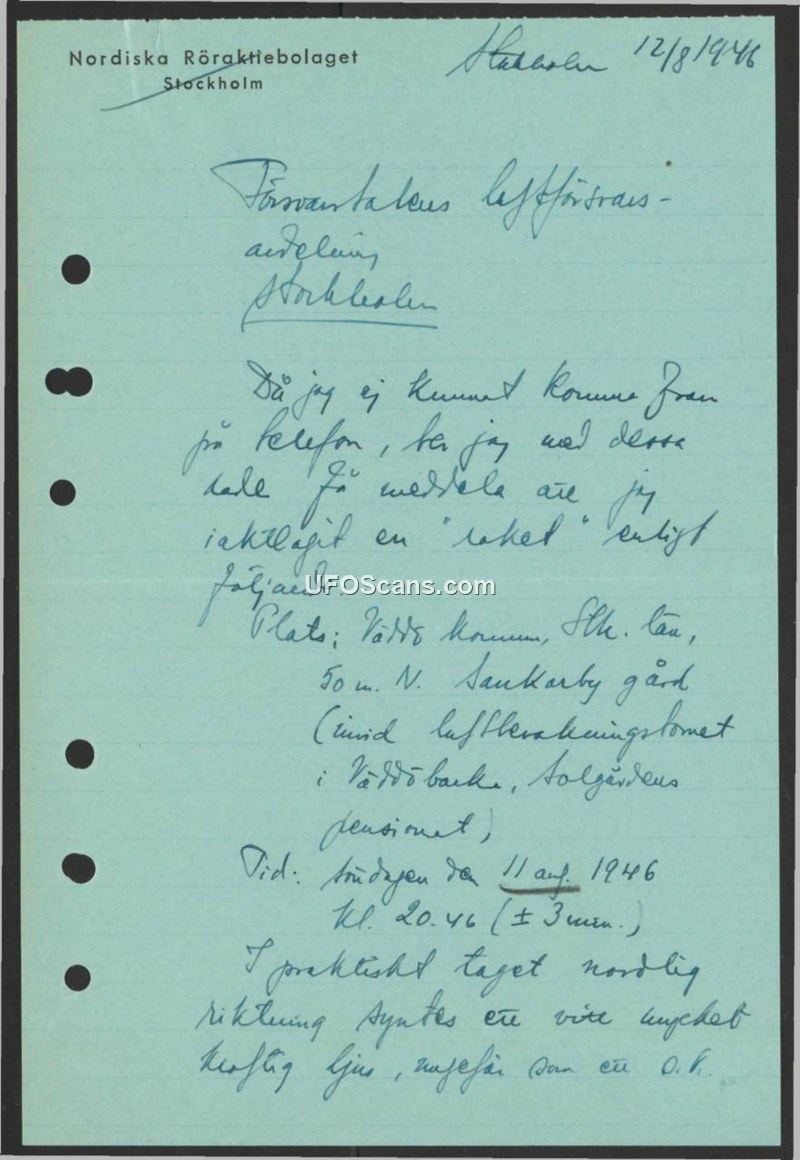 Nordiska Röraktiebolaget
Stockholm
Stockholm 12/8 1946
Försvarsstabens luftförsvars-
avdelning
Stockholm
Då jag ej kunnat komma fram
på telefon, ber jag med dessa
rader få meddela att jag
iakttagit en "raket" enligt
följande.
UFOScans.com
Plats: Väddö kommun, Sthlm. län,
50 m. N. Sankarby gård
(invid luftbevakningstornet
i Väddöbacka, Solgårdens
pensionat)
Tid: söndagen den 11 aug. 1946
Kl. 20.46 (± 3 min.)
I praktiskt taget nordlig
riktning syntes ett vitt mycket
kraftig ljus, ungefär som ett